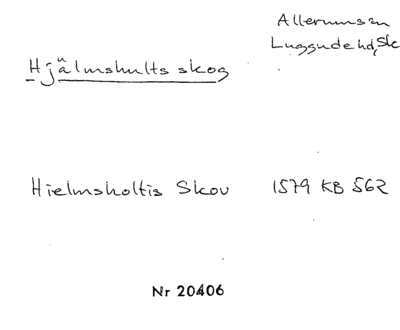 Allerums sn
Luggude hd, Sk
Hjälmshults skog
Hielmsholtis Skov 1579 KB 562
Nr 20406